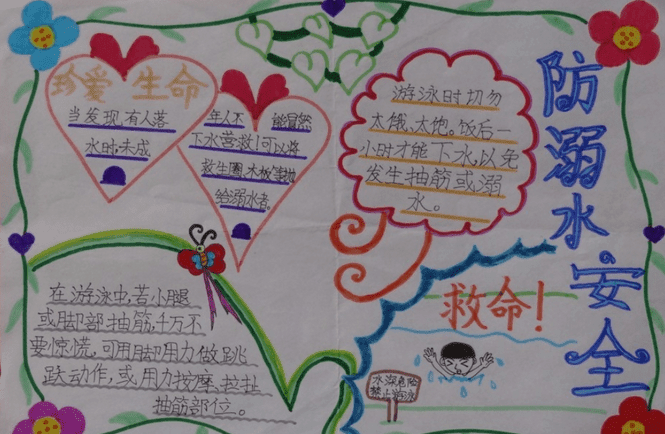 防溺水安全
珍爱 生命
当发现有人落
水时,未成
年人不能冒然
下水营救!可以将
救生圈、木板等抛
给溺水者。
游泳时切勿
太饿、太饱。饭后一
小时才能下水,以免
发生抽筋或溺
水。
在游泳中,若小腿
或脚部抽筋,千万不
要惊慌,可用脚用力做跳
跃动作,或用力按摩、拉扯
抽筋部位。
救命!
水深危险
禁止游泳